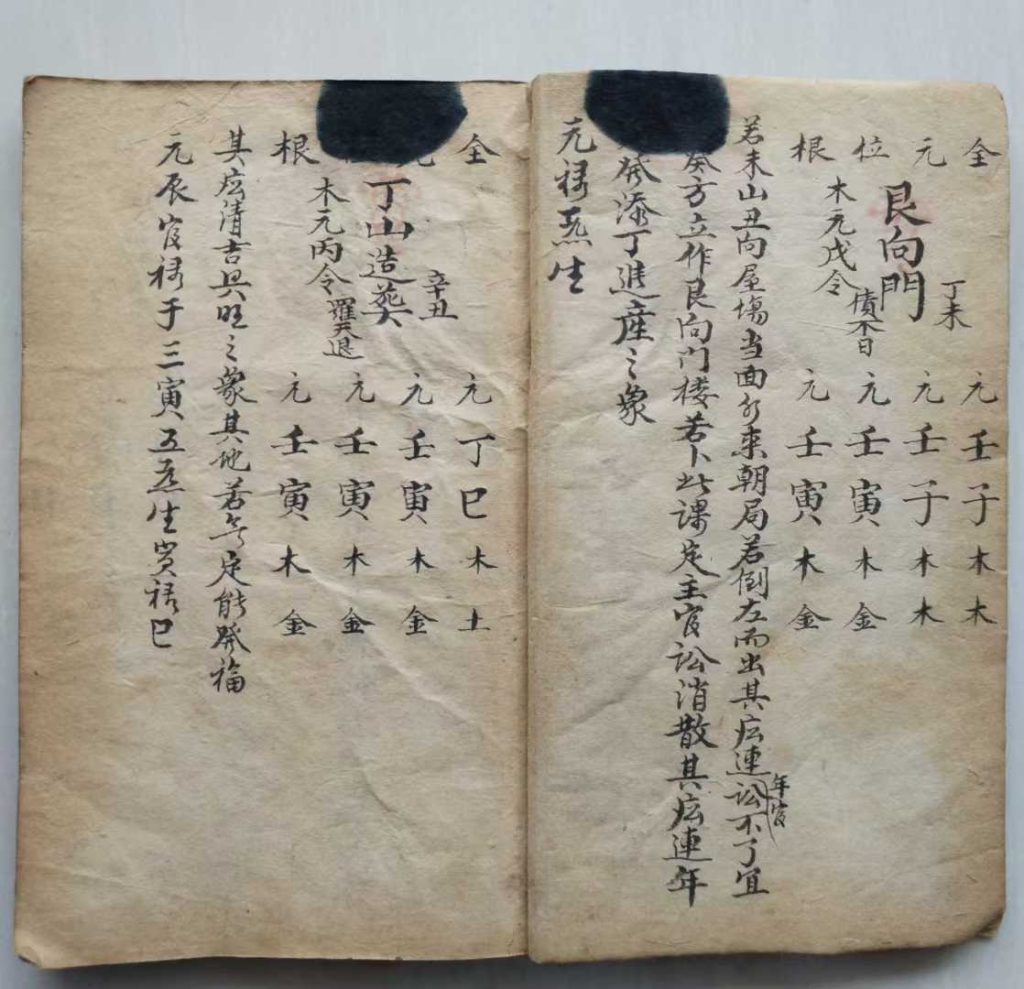 全 元壬子木木
元 元壬子木木
位 元壬寅木金
根 元壬寅木金
艮向門
丁未
木元戊令
債不日
若未山丑向屋場当面水来朝局若倒左而出其応連年官訟不了宜
癸方立作艮向门楼若卜此课定主官訟消散其応連年
發添丁進産之象
元禄
生
全 元丁巳木土
元壬寅木金
元壬寅木金
根 元壬寅木金
丁山造葬
辛丑
木元丙令
羅天退
其応清吉興旺之象其地若 定能發福
元辰官禄于三寅五 生 禄巳